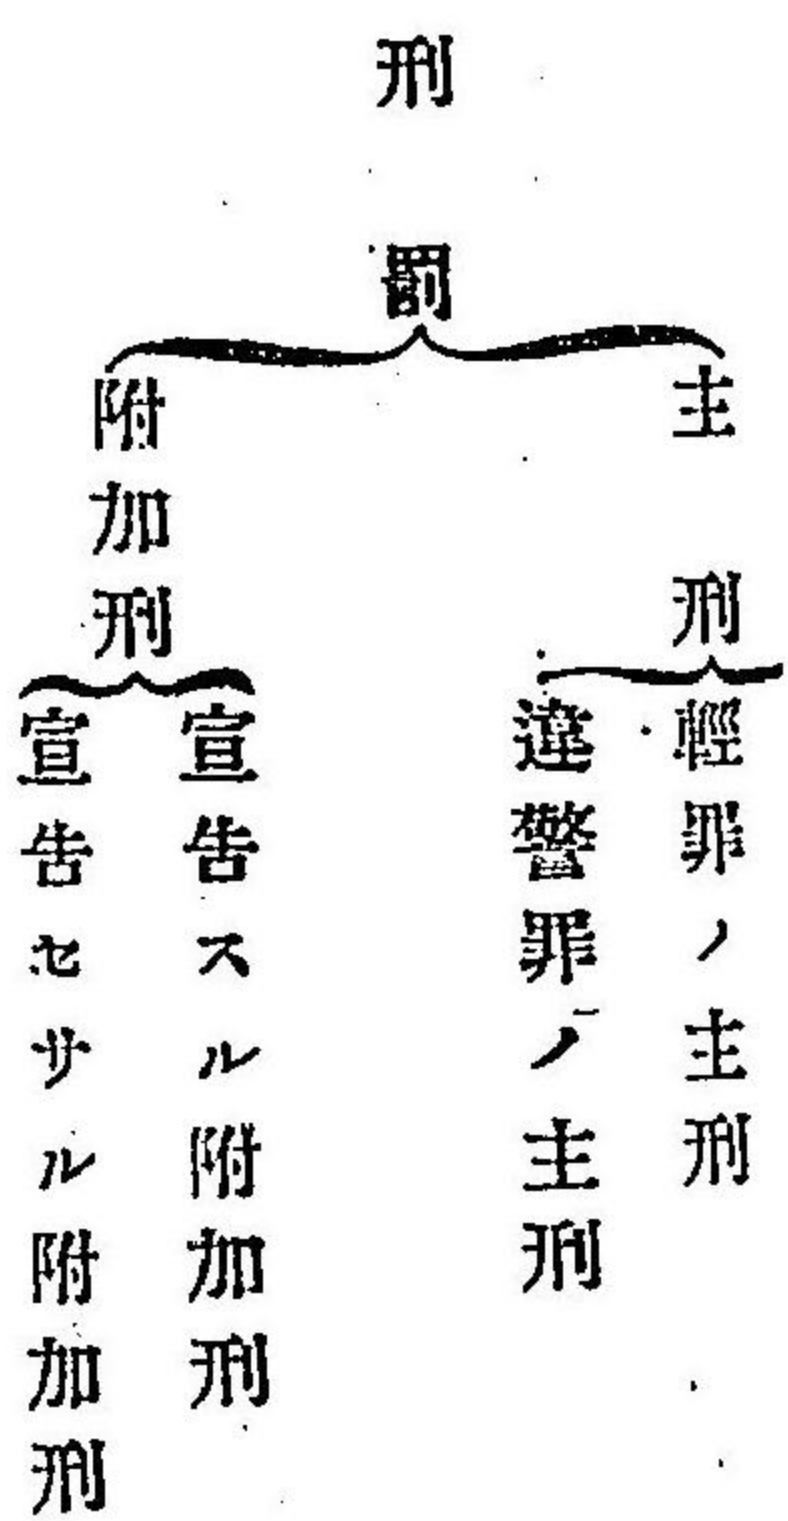 刑罰
主刑
輕罪ノ主刑
違警罪ノ主刑
附加刑
宣告スル附加刑
宣告セサル附加刑